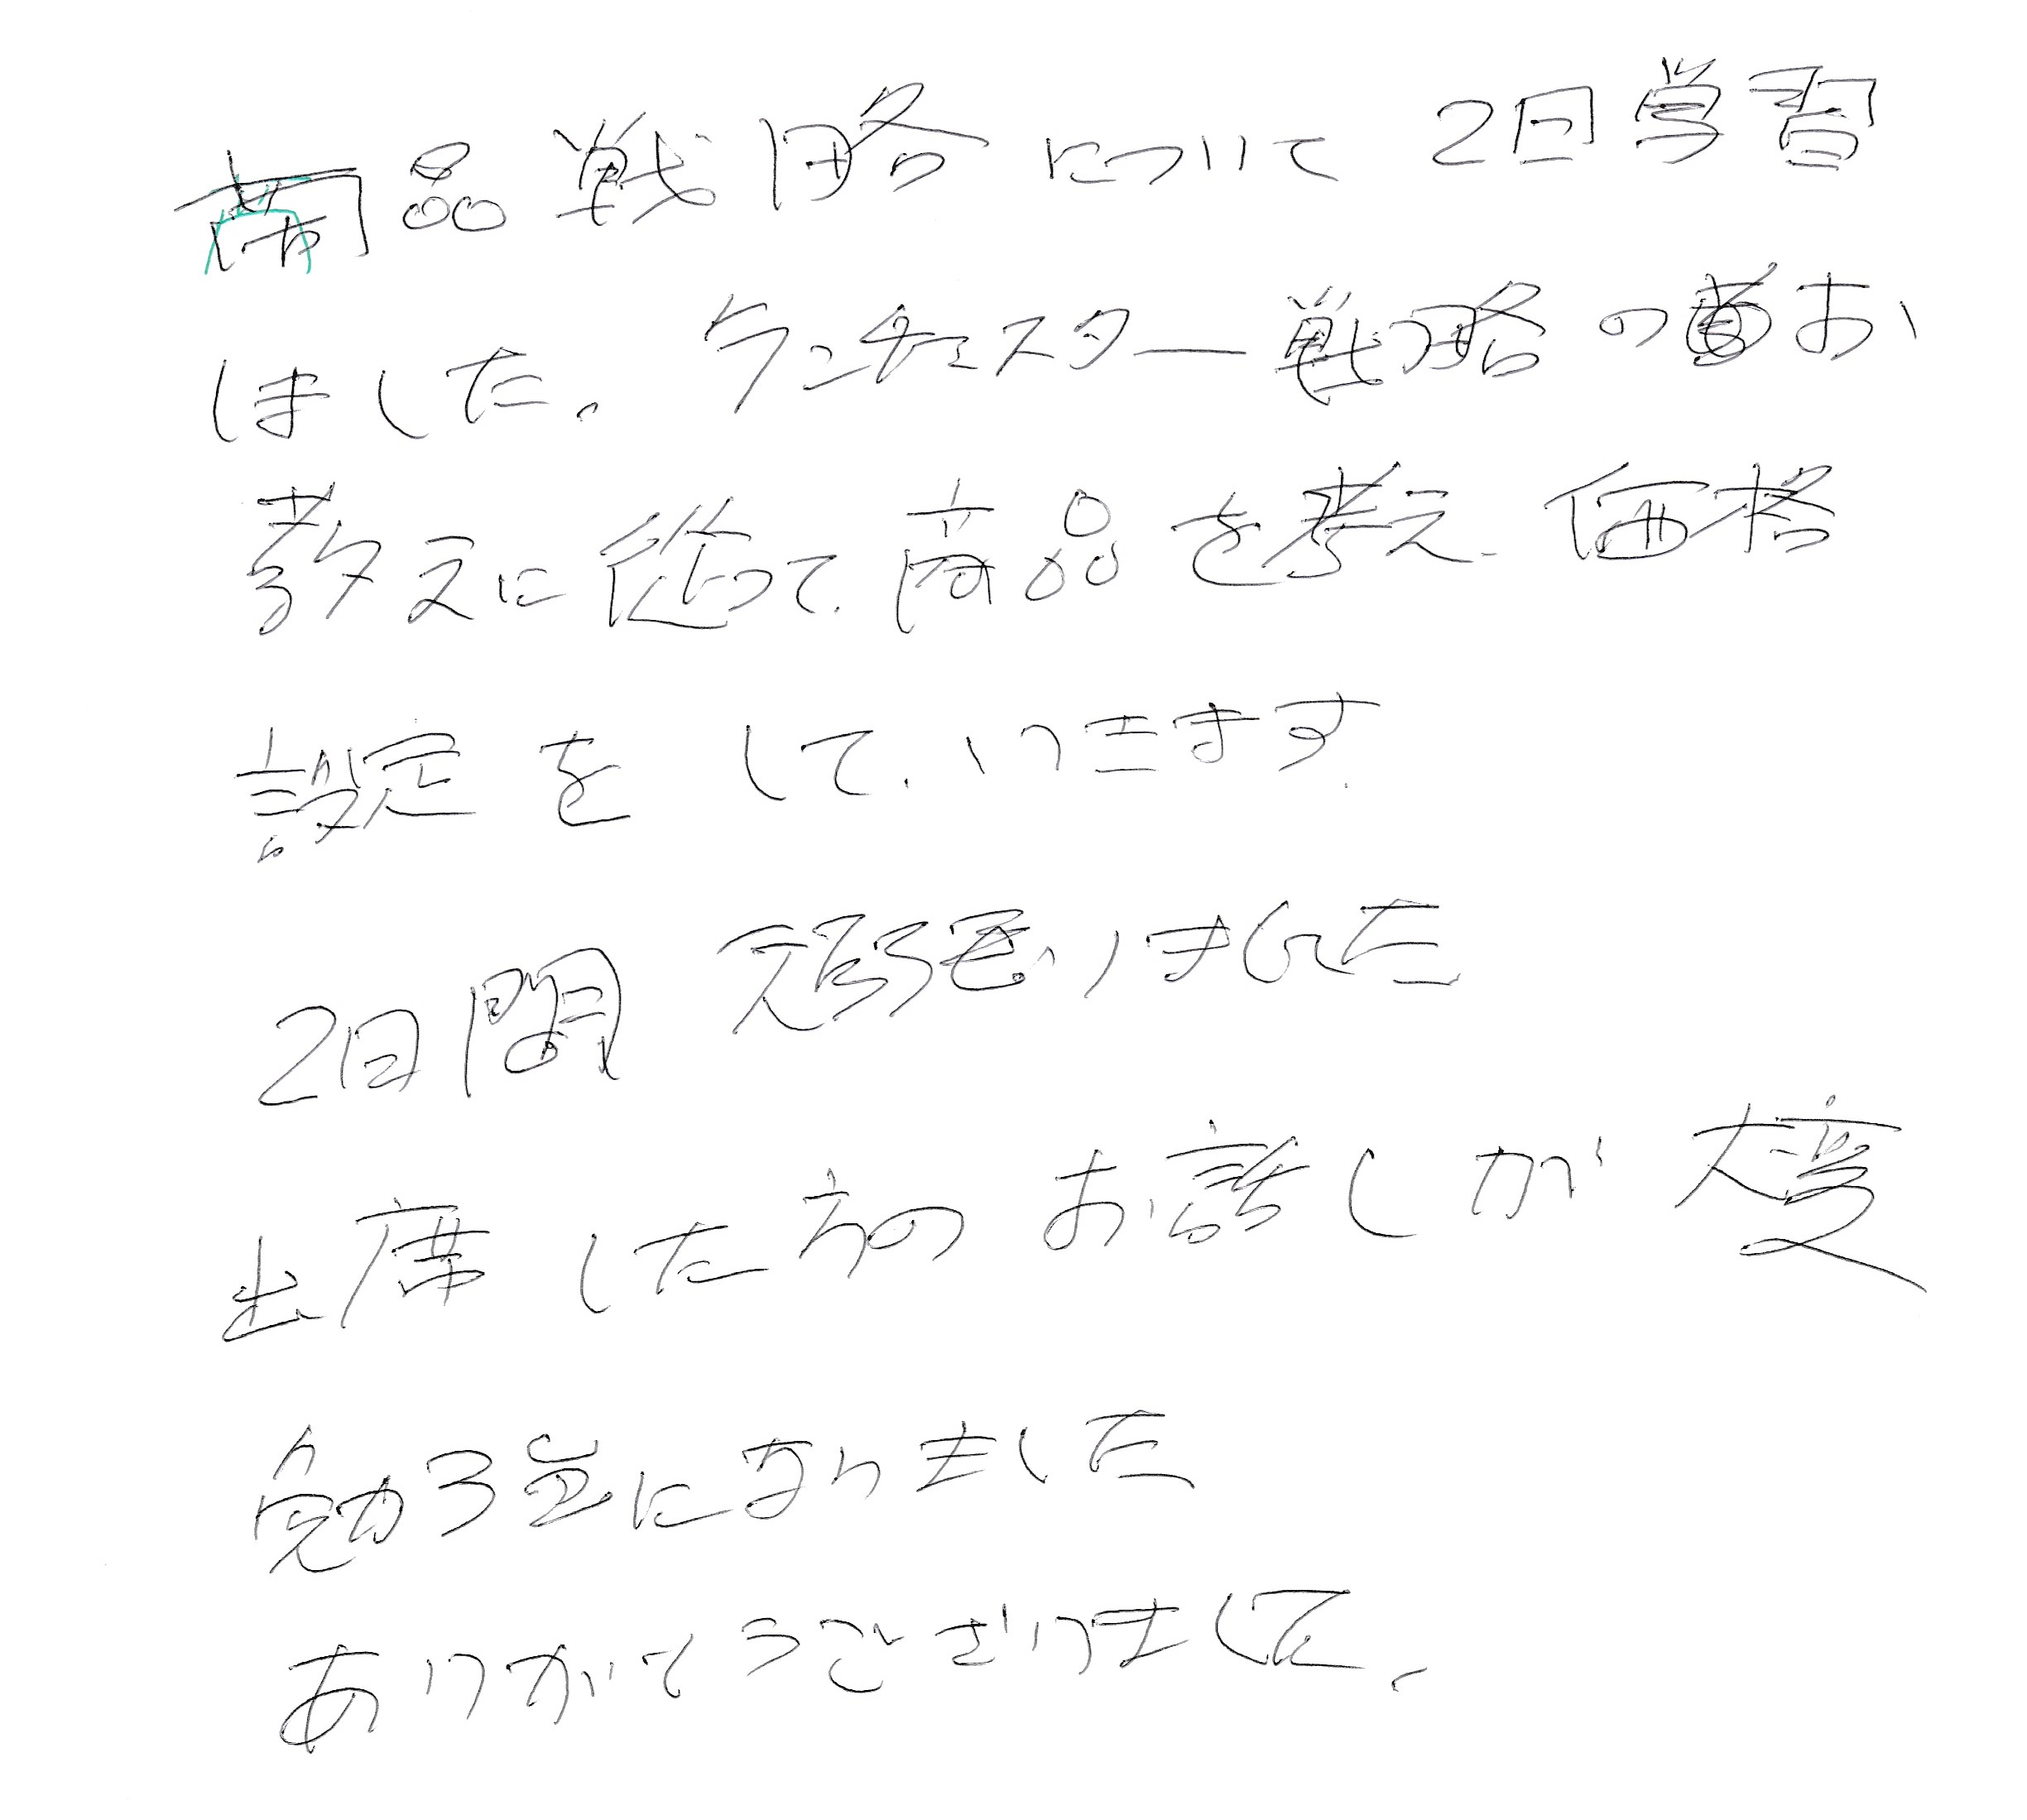 商品戦略について2日学習
しました。ランチェスター戦略のお
教えに従って、商品を考え、価格
設定をして、いきます。
2日間 頑張りました
出席した方のお話しが大変
勉強になりました
ありがとうございました。